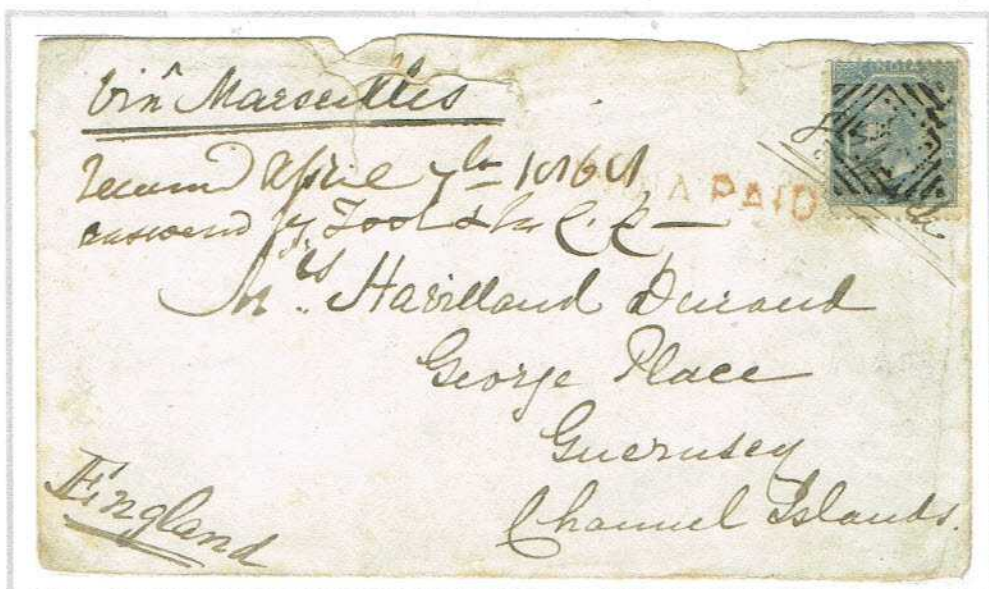 Via Marseilles
April 7th
PAID
answered by
Mrs. Havilland Durand
George Place
Guernsey
Channel Islands.
England